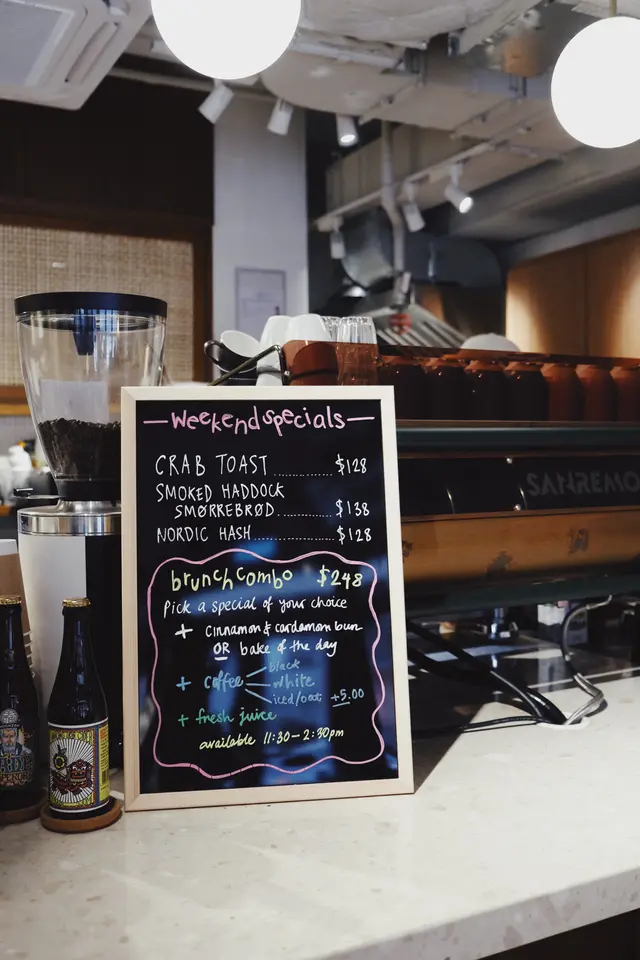 weekend specials
CRAB TOAST ............ $128
SMOKED HADDOCK
SMØRREBRØD ............ $138
NORDIC HASH ............ $128
brunch combo $248
Pick a special of your choice
+ cinnamon & cardamom bun
OR bake of the day
+ coffee black
white
iced/oat +5.00
+ fresh juice
available 11:30-2:30pm
SANREMO